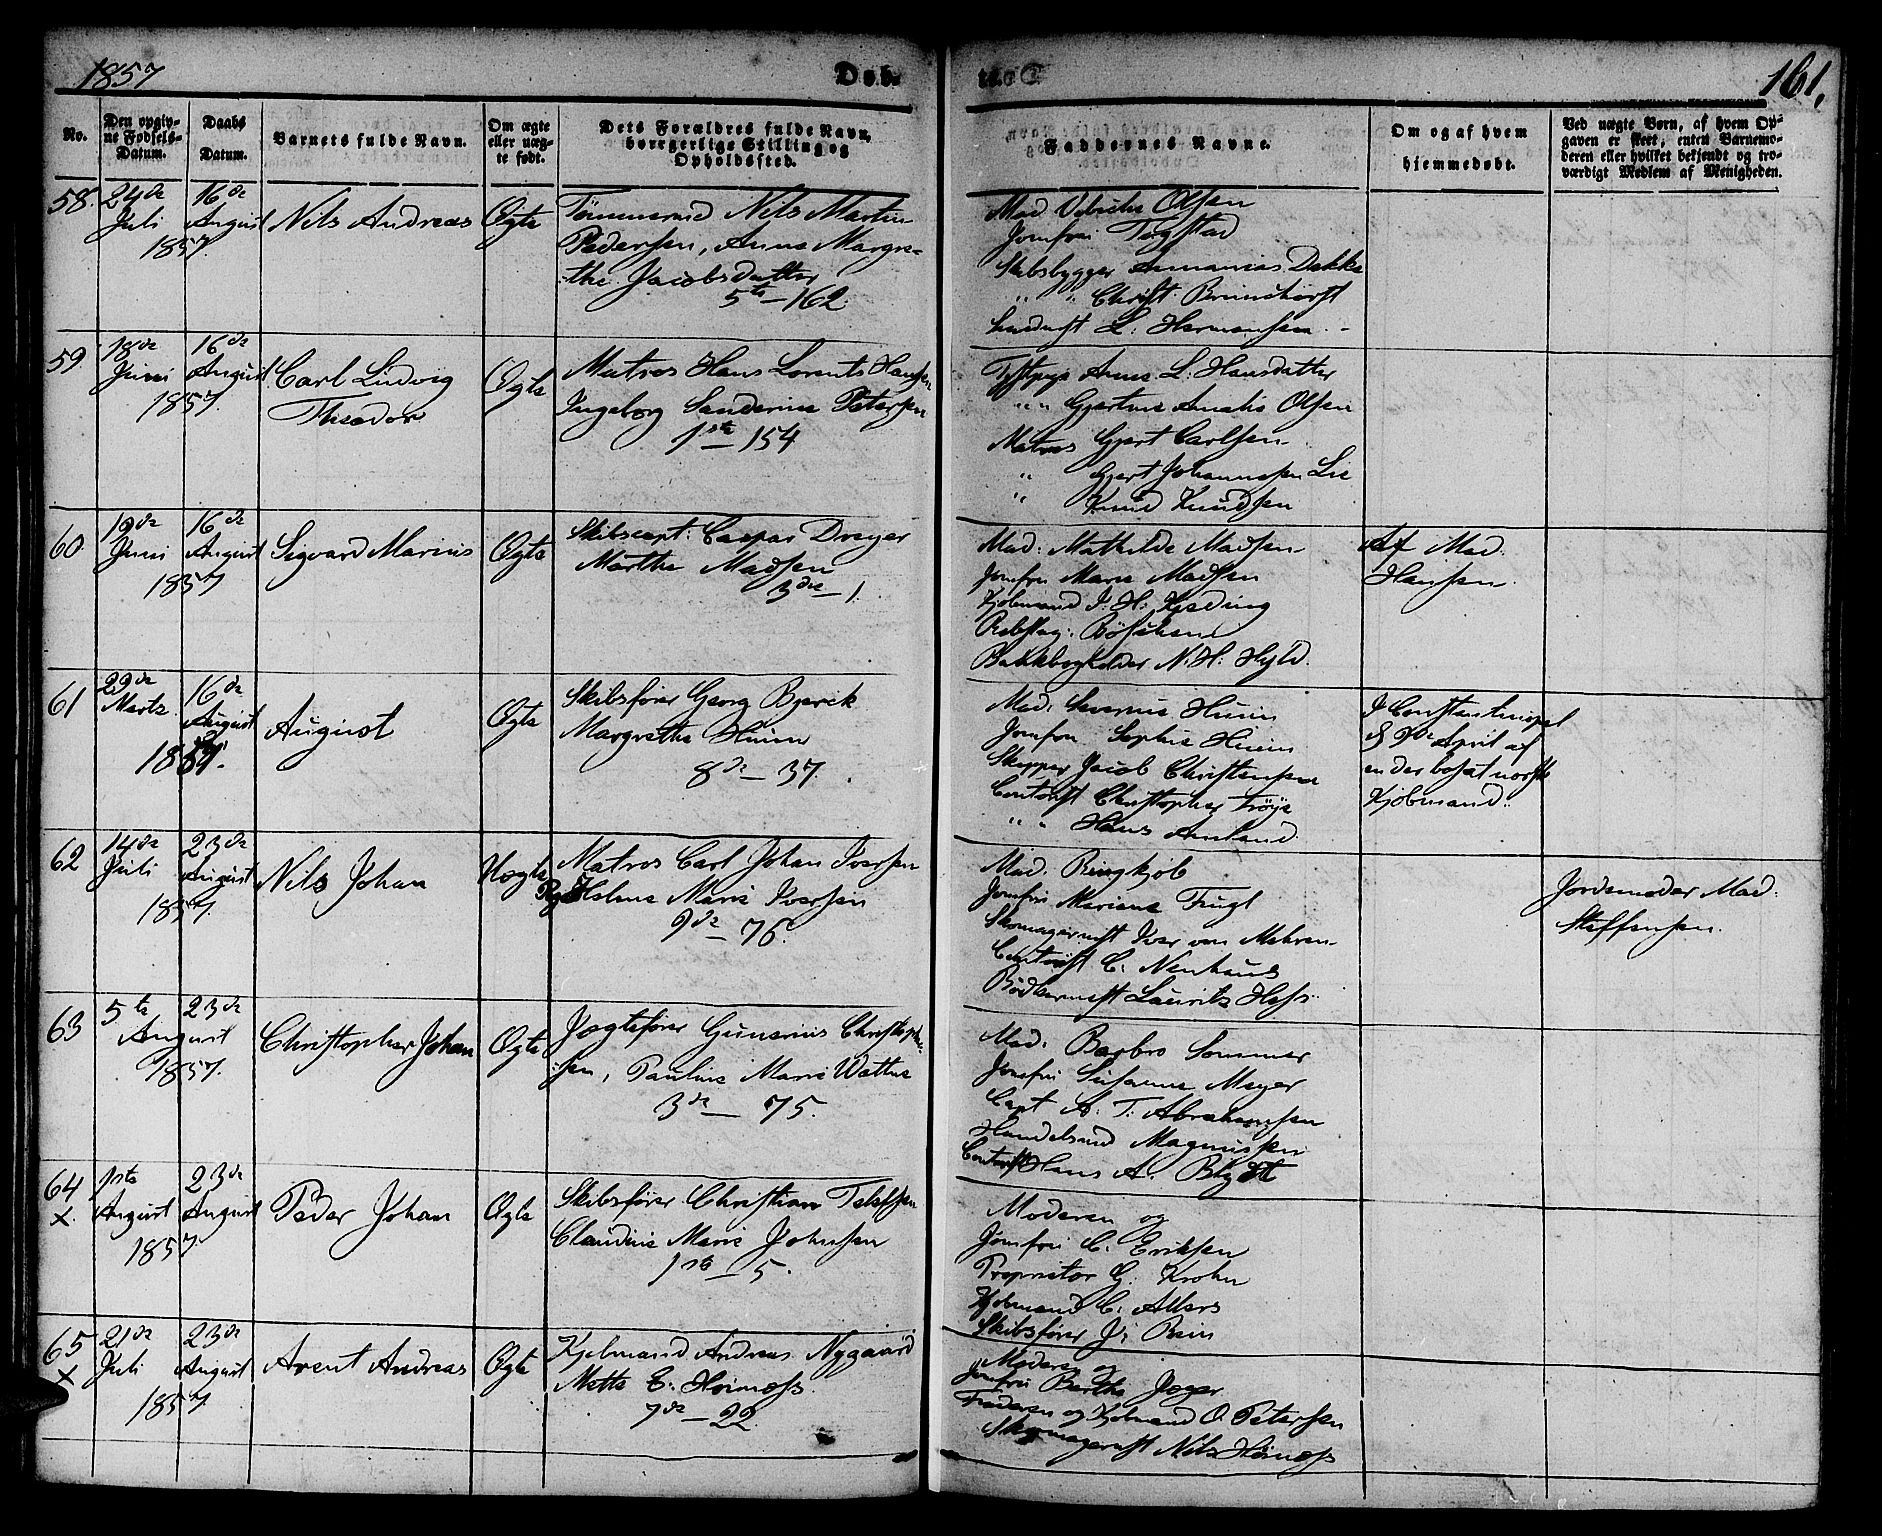 1857
Døb-
te.
161.
No.
Den opgiv-
ne Fødsels-
Datum.
Daabs
Datum.
Barnets fulde Navn.
Om ægte
eller uæg-
te født.
Dets Forældres fulde Navn,
borgerlige Stilling og
Opholdsted.
Faddernes Navne.
Om og af hvem
hjemmedøbt.
Ved uægte Børn, af hvem Op-
gaven er skeet, enten Barnemo-
deren eller hvilket bekjendt og tro-
værdigt Medlem af Menigheden.
58.
24de
Juli
1857.
16de
August
Nils Andreas
Ægte
Tømmermd Nils Martin
Pedersen, Anne Margre-
the Jacobsdatter
5te – 162.
Mad Olsen
Jomfru Tegstad
Skibsbygger Annanias Dekke
" " Christ. Brunchorst
L. Hermansen. -
59.
18de
Juni
1857.
16de
August
Carl Ludvig
Theodor
Ægte
Matros Hans Lorents Hansen
Ingeborg Sanderine Petersen
1ste – 154
Tjstpge Anne L. Hansdatter
" " Gjertine Amalie Olsen
Matros Gjert Carlsen
" Gjert Johannesen Lie
" Knud Knudsen
60.
19de
Juni
1857
16de
August
Sigvard Marius
Ægte
Skibscapt. Caspar Dreyer
Marthe Madsen
3die – 1.
Mad. Mathilde Madsen
Jomfru Marie Madsen
Kjøbmand J. H. Kjeding
Rebslag.
Bankbogholder N. H. Hyld.
Af Mad.
Hansen.
61
29de
Marts
1857.
16de
August
August
Ægte
Skibsfører Georg Bjerck
Margrethe Huun
8de – 37.
Mad. Severine Huun
Jomfru Sophie Huun
Skipper Jacob Christensen
Contorist Christopher Frøye
" " Hans Amland
I Constantinopel
d. April af
en der bosat norsk
Kjøbmand.
62
14de
Juli
1857.
23de
August
Nils Johan
Uægte
Matros Carl Johan Iversen
Pige Helene Marie Iversen
9de – 76.
Mad. Ringkjøb
Jomfru Mariane Fugl
Skomagermst Iver von Mehren
Contorist C. Neuhaus
Bødkermest Laurits Hess.
Jordemoder Mad.
Steffensen.
63
5te
August
1857.
23de
Christopher Johan
Ægte
Jægtefører Gunerius Christophe-
sen, Pauline Marie Watne
3de – 75.
Mad. Barbro Sommer
Jomfru Susanne Meyer
Capt A. T. Abrahamsen
Handelsmd Magnussen
Contorist Hans A. Blydt
64
x.
1ste
August
1857.
23de
August
Peder Johan
Ægte
Skibsfører Christian Tellefsen
Claudine Marie Johnsen
1ste – 5.
Moderen og
Jomfru C. Eriksen
Proprietor G. Krohn
Kjøbmand C. Allers
Skibsfører J. Bein
65
x
21de
Juli
1857.
23de
August
Arent Andreas
Ægte
Kjøbmand Andreas Nygaard
Mette E. Heimoss.
7de – 22.
Moderen og
Jomfru Berthe Jeger
Faderen og Kjøbmand O. Petersen
Skomagermst Nils Heimoss